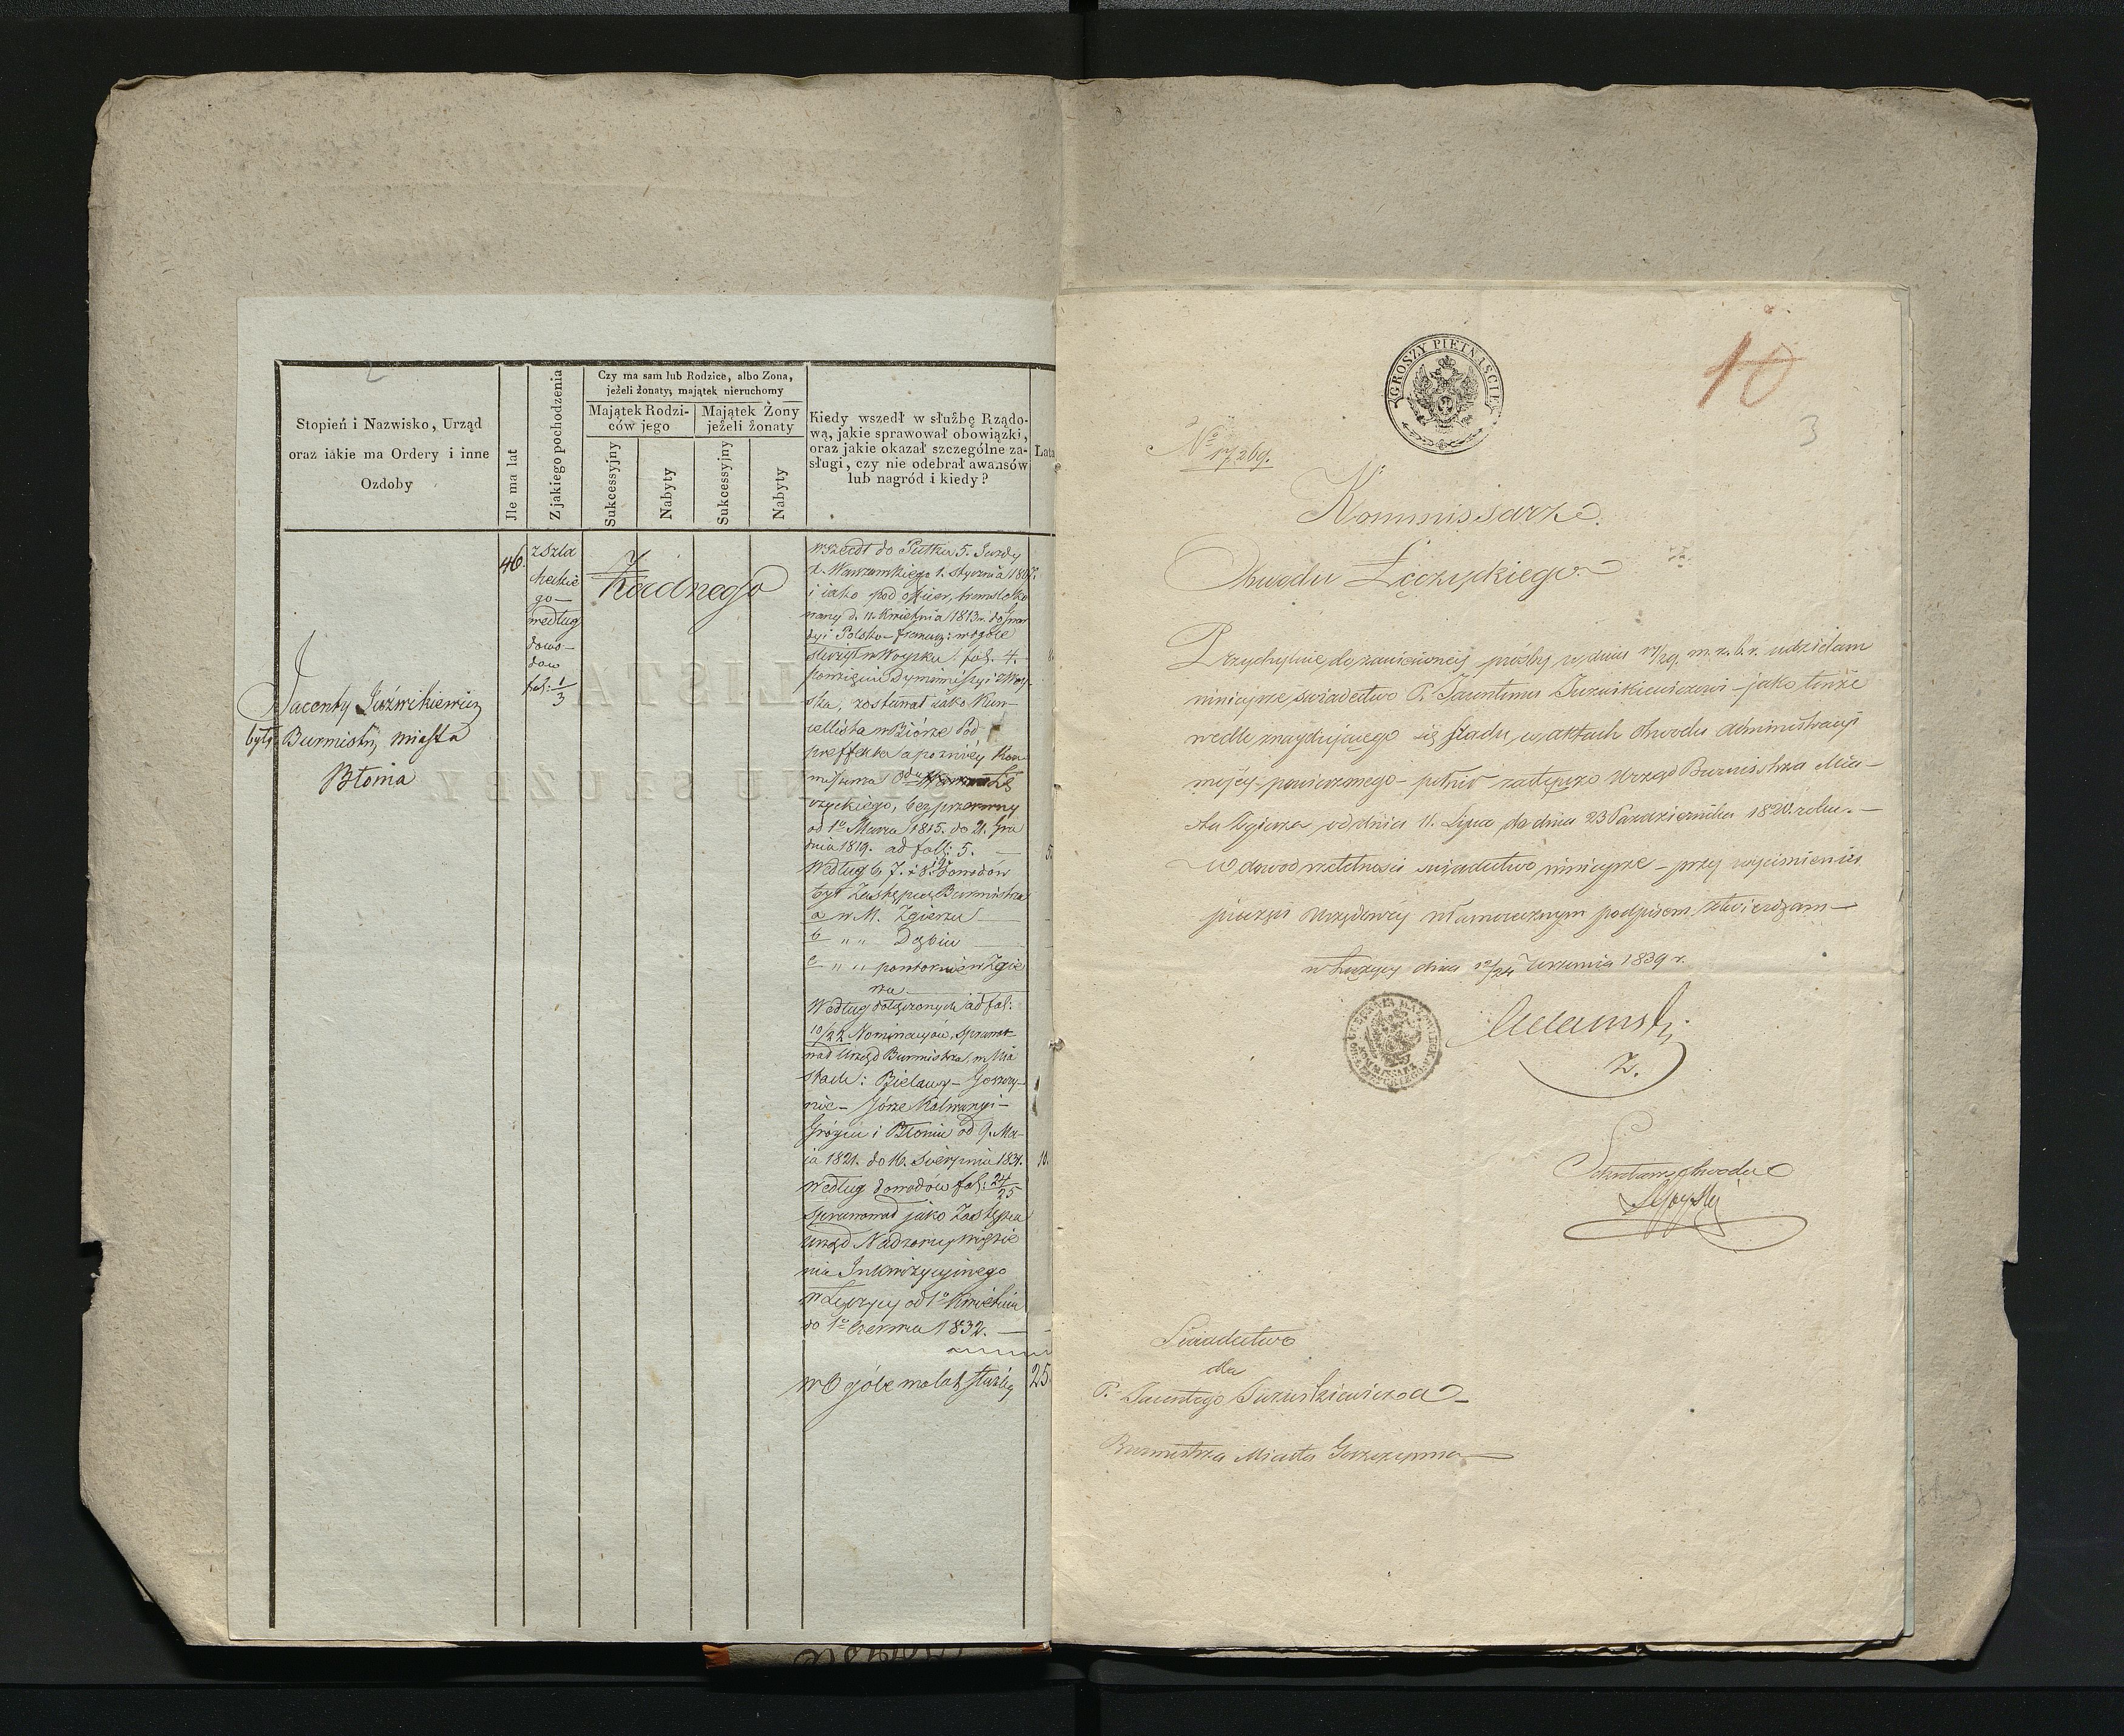 Stopień i Nazwisko, Urząd
oraz iakie ma Ordery i inne
Ozdoby
Jle ma lat
Z jakiego pochodzenia
Czy ma sam lub Rodzice, albo Zona,
jeżeli żonaty, majątek nieruchomy
Majątek Rodzi-
ców jego
Majątek Żony
jeżeli żonaty
Sukcessyjny
Nabyty
Sukcessyjny
Nabyty
Kiedy wszedł w służbę Rządo-
wą, jakie sprawował obowiązki,
oraz jakie okazał szczególne za-
sługi, czy nie odebrał awansów
lub nagród i kiedy?
Lata
Jacenty Juźwikiewicz
były Burmistrz miasta
Błonia
46.
z szla
checkie
go—
według
dowo-
dow
fol: 1/3
Żadnego
wszedł do Pułku 5. Jazdy
X. Warszawskiego 1. stycznia
i iako pod oficer, translоко
wany d. 11. Kwietnia 1813 r. do Gwar
dyi Polsko-francuz: w ogóle
służył w Woysku fol. 4.
powzięciu Dymmissyi z Woy-
ska, zostawał iako Kan-
cellista w Biórze Pod
preffekta a pozniéy Kom
missarza Obdu Łę
czyckiego, bez przerwy
od 1o Marca 1815. do 21. Gru
dnia 1819. ad foll: 5. —
5.
Według 6, 7. i 8. dowodów
był Zastępcą Burmistrza
a w M. Zgierzu
b " " Dąbiu
c " " powtornie w Zgie
rzu.
Według dołączonych ad fol:
10/22 Nominacyów, sprawo-
wał Urząd Burmistrza, w Mia
stach: Bielawy — Goszczy-
nie — Górze Kalwaryi —
Gróycu i Błoniu od 9. Ma-
ia 1821. do 16. Sierpnia 1831.
10.
Według dowodow fol: 24/25
sprawował jako Zastępca
urząd Nadzorcy więzie
nia Inkwizycyinego
w Łęczycy od 1o Kwietnia
do 1o Czerwca 1832. —
w Ogóle ma lat służby
25
GROSZY PIĘTNAŚCIE
10
3
No 17,269.
Kommissarz
Obwodu Łęczyckiego
Przychylnie do zaniesionéy prośby w dniu 17/29. m. z. b. r. udzielam
ninieysze świadectwo P. Jacentemu Juzwikiewiczowi — jako tenże
wedle znayduiącego się śladu, w aktach Obwodu Administracyi
moiéy powierzonego — pełnił zastępczo Urząd Burmistrza Mia-
sta Zgierza od dnia 11. Lipca do dnia 23 Października 1820. roku. —
W dowod rzetelności świadectwo ninieysze — przy wyciśnieniu
pieczęci Urzędowéy własnoręcznym podpisem stwierdzam —
w Łęczycy dnia 12/24 Września 1839 r.
Adamski
Z.
Sekretarz Obwodu
Świadectwo
dla
P. Jacentego Juzwikiewicza —
Burmistrza Miasta Goszczyna —